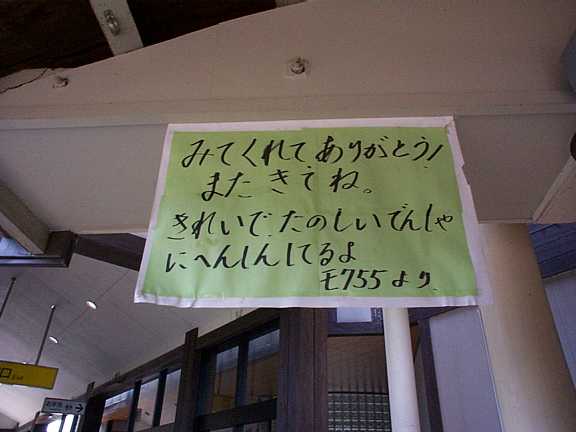 みてくれてありがとう!
またきてね。
きれいで、たのしいでんしゃ
にへんしんしてるよ
モ755より
口